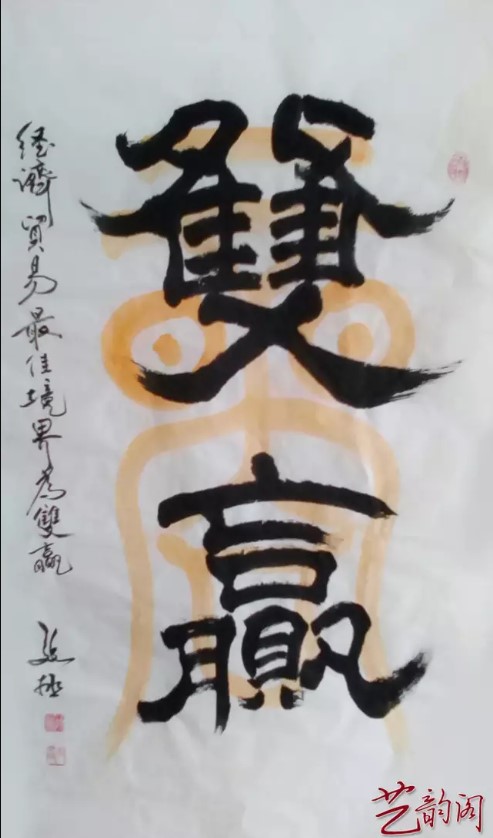 雙
贏
经濟贸易最佳境界為雙贏
艺韵阁